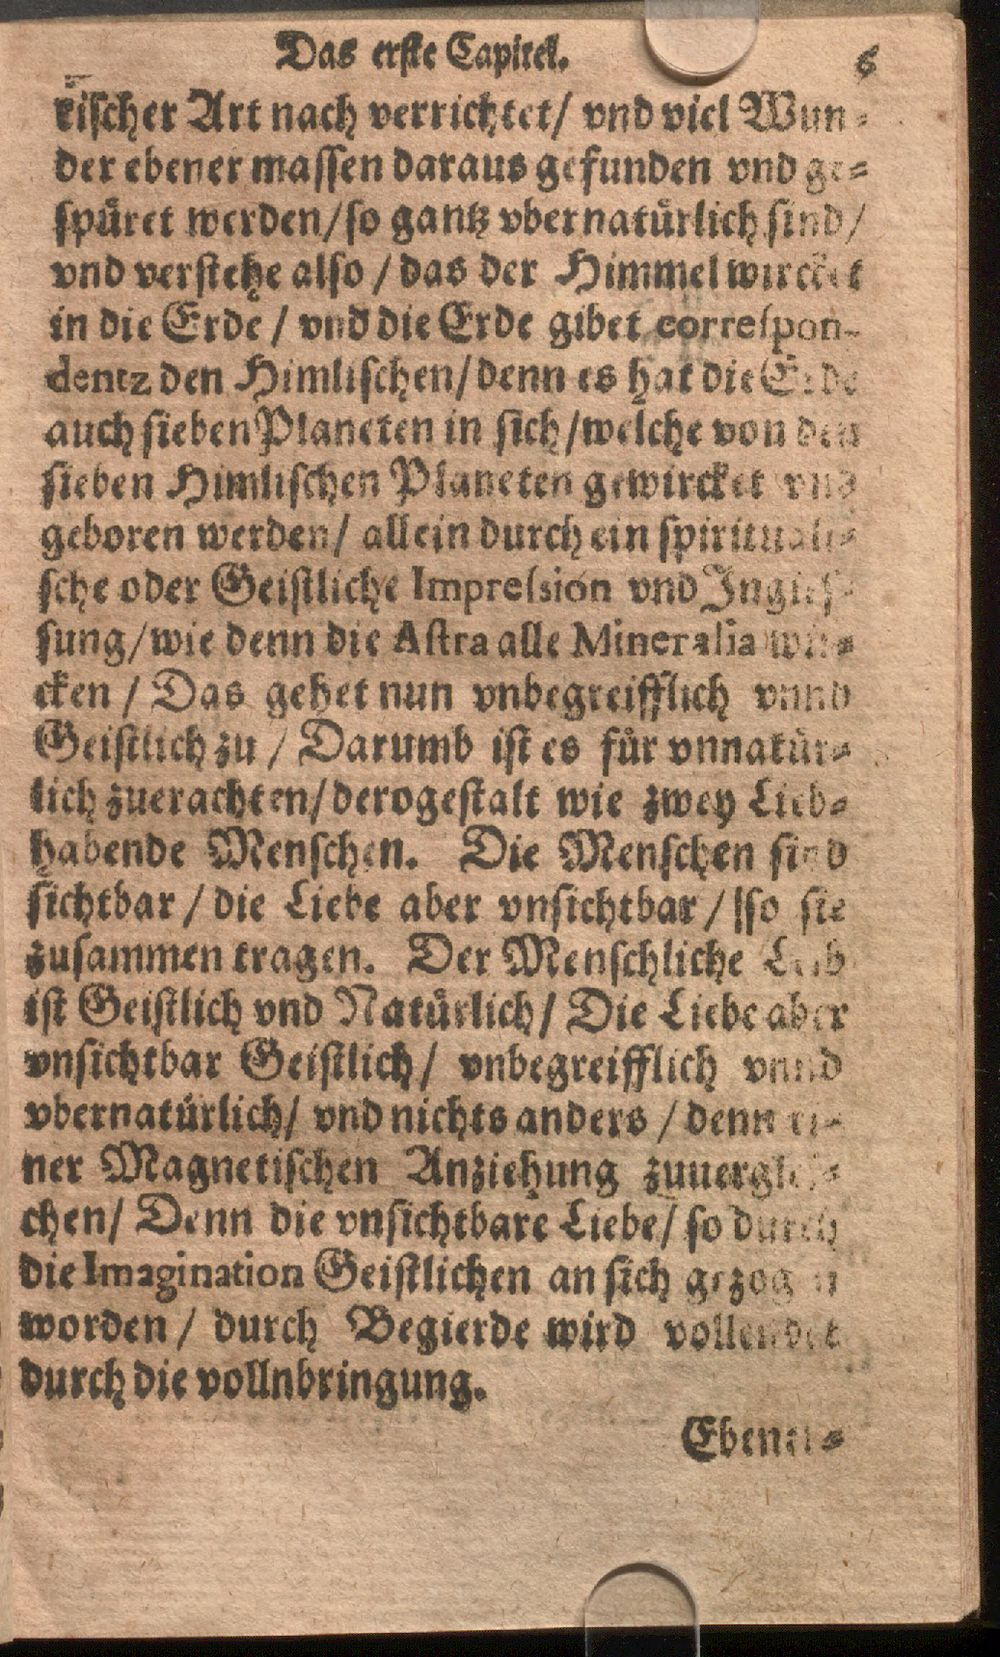 Das erste Capitel. 6
kischer Art nach verrichtet/ vnd viel Wun-
der ebener massen daraus gefunden vnd ge-
spüret werden/ so gantz vbernatürlich sind/
vnd verstehe also / das der Himmel wircket
in die Erde / vnd die Erde gibet correspon-
dentz den Himlischen/ denn es hat die Erde
auch sieben Planeten in sich / welche von den
sieben Himlischen Planeten gewircket vnd
geboren werden/ allein durch ein spirituali-
sche oder Geistliche Impression vnd Ingies-
sung/ wie denn die Astra alle Mineralia wir-
cken / Das gehet nun vnbegreifflich vnnd
Geistlich zu / Darumb ist es für vnnatür-
lich zuerachten/ derogestalt wie zwey Lieb-
habende Menschen. Die Menschen sind
sichtbar / die Liebe aber vnsichtbar / so sie
zusammen tragen. Der Menschliche Leib
ist Geistlich vnd Natürlich/ Die Liebe aber
vnsichtbar Geistlich/ vnbegreifflich vnnd
vbernatürlich/ vnd nichts anders / denn ei-
ner Magnetischen Anziehung zuuerglei-
chen/ Denn die vnsichtbare Liebe/ so durch
die Imagination Geistlichen an sich gezogen
worden / durch Begierde wird vollendet
durch die vollnbringung.
Ebener-